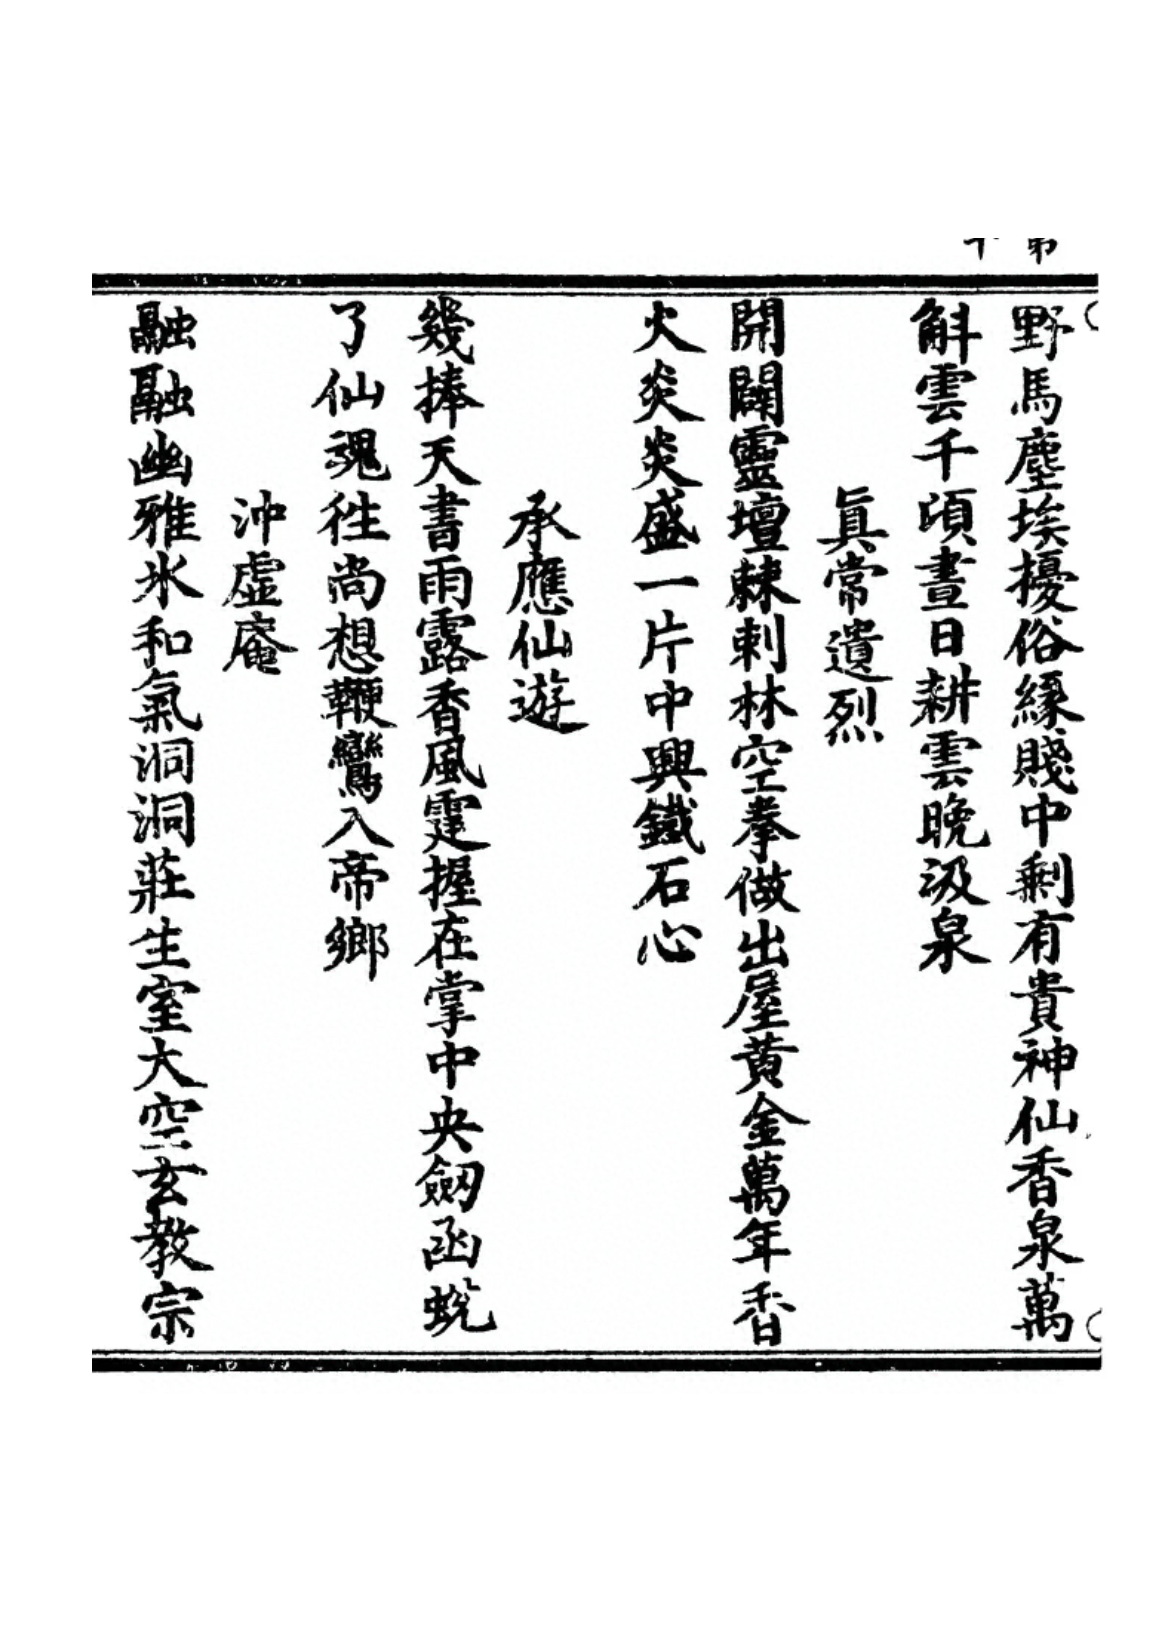 第
十
野馬塵埃擾俗緣賤中剩有貴神仙香泉萬
斛雲千頃晝日耕雲晚汲泉
真常遺烈
開闢靈壇棘刺林空拳做出屋黃金萬年香
火炎炎盛一片中興鐵石心
承應仙遊
幾捧天書雨露香風霆握在掌中央劒函蛻
了仙魂徃尚想鞭鸞入帝鄉
沖虛庵
融融幽雅氷和氣洞洞莊生室大空玄教宗